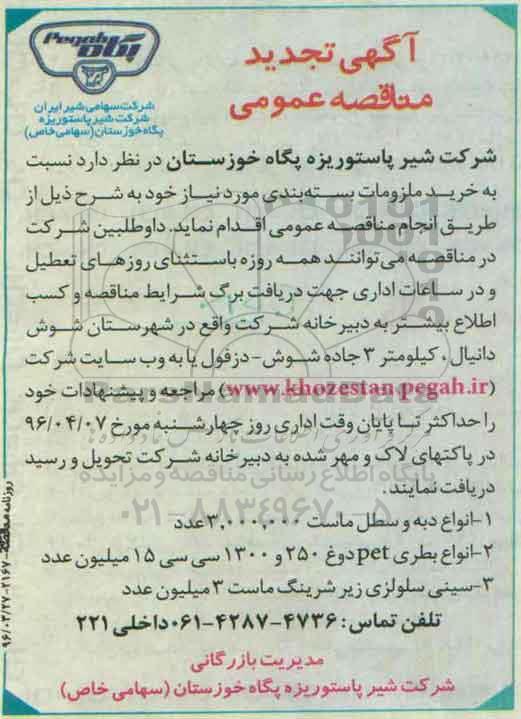 Pegah
پگاه
شرکت سهامی شیر ایران
شرکت شیر پاستوریزه
پگاه خوزستان (سهامی خاص)
آگهی تجدید
مناقصه عمومی
شرکت شیر پاستوریزه پگاه خوزستان در نظر دارد نسبت
به خرید ملزومات بسته‌بندی مورد نیاز خود به شرح ذیل از
طریق انجام مناقصه عمومی اقدام نماید. داوطلبین شرکت
در مناقصه می‌توانند همه روزه باستثنای روزهای تعطیل
و در ساعات اداری جهت دریافت برگ شرایط مناقصه و کسب
اطلاع بیشتر به دبیرخانه شرکت واقع در شهرستان شوش
دانیال، کیلومتر ۳ جاده شوش-دزفول یا به وب سایت شرکت
(www.khozestan pegah.ir) مراجعه و پیشنهادات خود
را حداکثر تا پایان وقت اداری روز چهارشنبه مورخ ۹۶/۰۴/۰۷
در پاکتهای لاک و مهر شده به دبیرخانه شرکت تحویل و رسید
دریافت نمایند.
پایگاه اطلاع رسانی مناقصه و مزایده
۰۲۱-۸۸۳۴۹۶۷۰-۵
۱-انواع دبه و سطل ماست ۳,۰۰۰,۰۰۰ عدد
۲-انواع بطری pet دوغ ۲۵۰ و ۱۳۰۰ سی سی ۱۵ میلیون عدد
۳-سینی سلولزی زیر شرینگ ماست ۳ میلیون عدد
تلفن تماس: ۴۷۳۶-۴۲۸۷-۰۶۱ داخلی ۲۲۱
مدیریت بازرگانی
شرکت شیر پاستوریزه پگاه خوزستان (سهامی خاص)
روزنامه ۲۱۶۷-۹۶/۰۳/۲۷